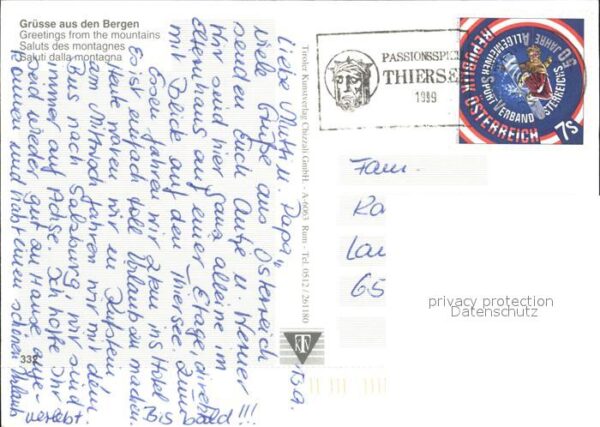 Grüsse aus den Bergen
Greetings from the mountains
Saluts des montagnes
Saluti dalla montagna
Liebe Mutti u. Papa,
viele Grüße aus Österreich
senden Euch Antje u. Werner
Wir sind hier ganz alleine im
Haus auf einer Etage, direkt
mit Blick auf den Thiersee. Zum
Essen fahren wir 2 km ins Hotel
Es ist einfach toll Urlaub zu machen.
Heute waren wir in Kufstein
am Mittwoch fahren wir mit dem
Bus nach Salzburg, wir sind
immer auf Achse. Ich hoffe Ihr
seid wieder gut zu Hause ange-
kommen und habt einen schönen Urlaub
verlebt.
Bis
bald!!!
332
Tiroler Kunstverlag Chizzali GmbH. - A-6063 Rum - Tel. 0512 / 261180
PASSIONSSPIELE
THIERSEE
1999
50 JAHRE ALLGEMEINER SPORTVERBAND ÖSTERREICHS
REPUBLIK ÖSTERREICH
7S
Fam.
Ra
Lau
65
privacy protection
Datenschutz